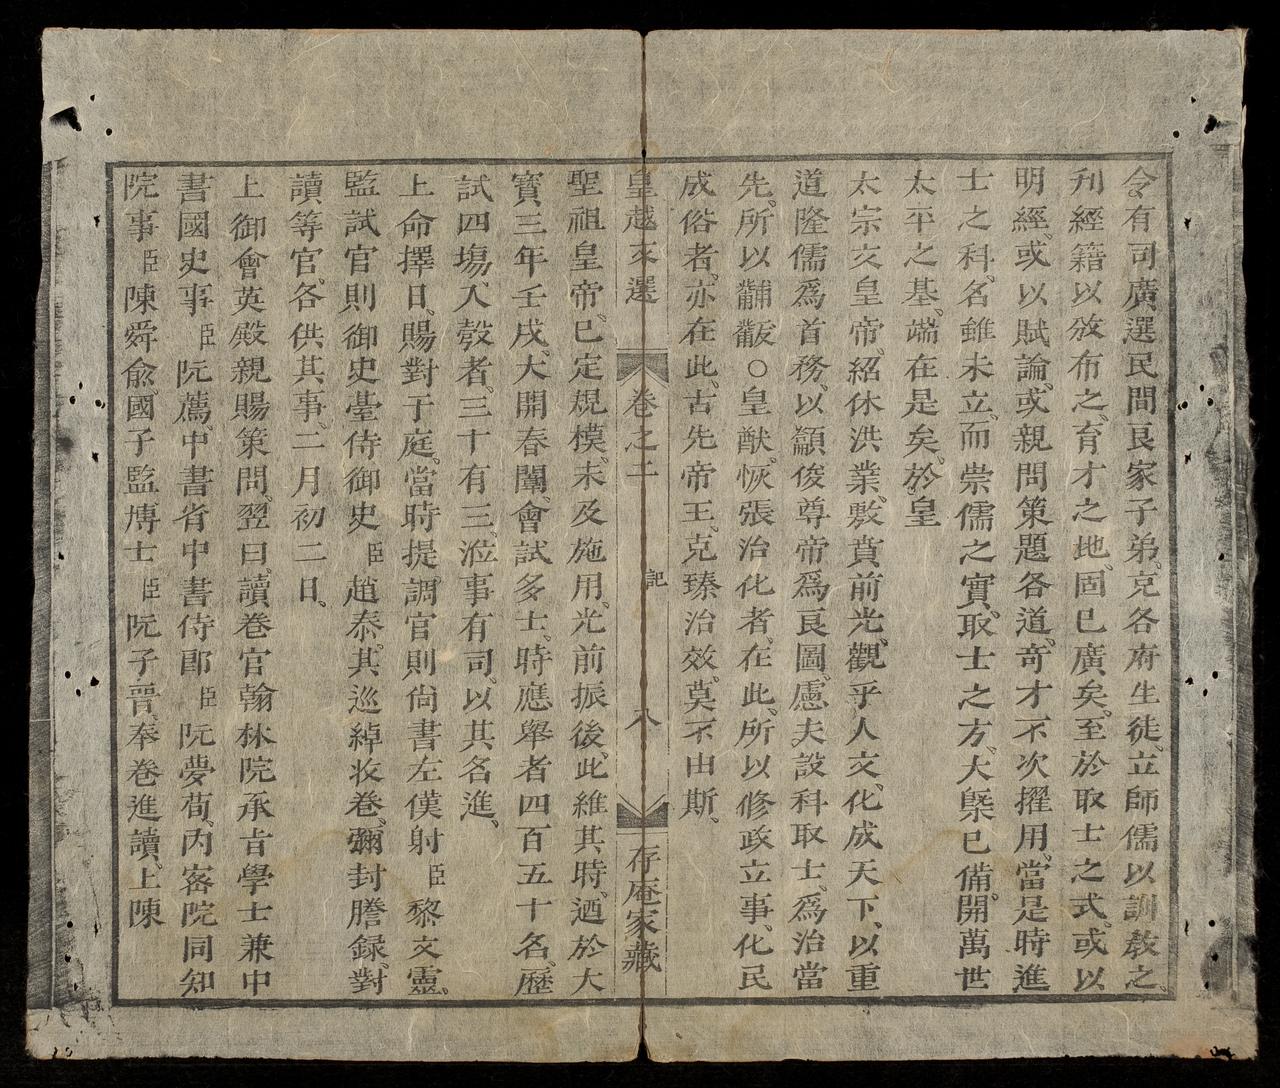 令有司廣選民間良家子弟充各府生徒立師儒以訓教之
刋經籍以㳟布之育才之地固已廣矣至於取士之式或以
明經或以賦論或親問策題各道奇才不次擢用當是時進
士之科名雖未立而崇儒之實取士之方大槩已備開萬世
太平之基端在是矣於皇
太宗文皇帝紹休洪業敷賁前光觀乎人文化成天下以重
道隆儒爲首務以籲俊尊帝爲良圖慮夫設科取士爲治當
先所以黼黻○皇猷恢張治化者在此所以修政立事化民
成俗者亦在此古先帝王克臻治效莫不由斯
皇越文選 卷之二 記 八 存庵家藏
聖祖皇帝已定規模未及施用光前振後此維其時迺於大
寶三年壬戌大開春闈會試多士時應舉者四百五十名歷
試四塲入彀者三十有三涖事有司以其名進
上命擇日賜對于庭當時提調官則尙書左僕射臣黎文靈
監試官則御史臺侍御史臣趙泰其巡綽收卷彌封謄録對
讀等官各供其事二月初二日
上御會英殿親賜策問翌日讀卷官翰林院承旨學士兼中
書國史事臣阮薦中書省中書侍郎臣阮夢荀內密院同知
院事臣陳舜俞國子監博士臣阮子晉奉卷進讀上陳